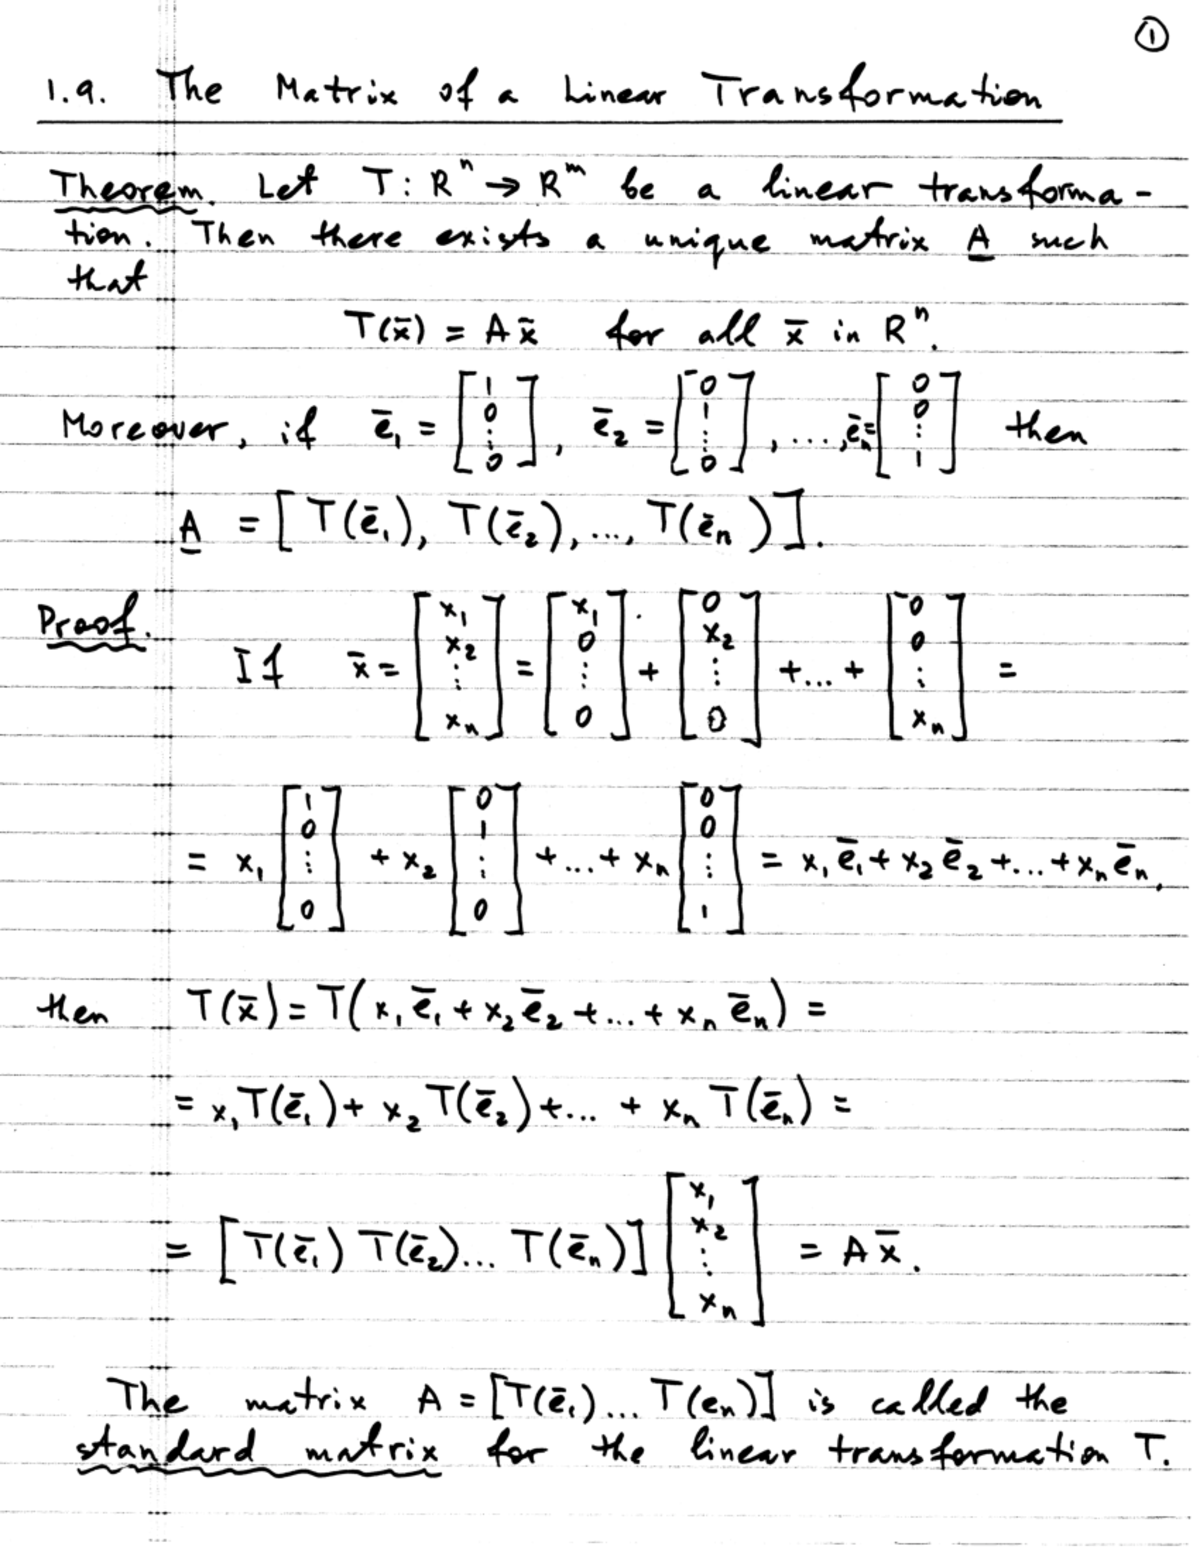 ①
1.9. The Matrix of a Linear Transformation
Theorem. Let T: Rⁿ → Rᵐ be a linear transforma-
tion. Then there exists a unique matrix A such
that
T(x̄) = A x̄ for all x̄ in Rⁿ.
Moreover, if ē₁ = [1 0 ⋮ 0], ē₂ = [0 1 ⋮ 0], ..., ēₙ = [0 0 ⋮ 1] then
A = [T(ē₁), T(ē₂), ..., T(ēₙ)].
Proof.
If x̄ = [x₁ x₂ ⋮ xₙ] = [x₁ 0 ⋮ 0] + [0 x₂ ⋮ 0] + ... + [0 0 ⋮ xₙ] =
= x₁ [1 0 ⋮ 0] + x₂ [0 1 ⋮ 0] + ... + xₙ [0 0 ⋮ 1] = x₁ ē₁ + x₂ ē₂ + ... + xₙ ēₙ,
then T(x̄) = T(x₁ ē₁ + x₂ ē₂ + ... + xₙ ēₙ) =
= x₁ T(ē₁) + x₂ T(ē₂) + ... + xₙ T(ēₙ) =
= [T(ē₁) T(ē₂) ... T(ēₙ)] [x₁ x₂ ⋮ xₙ] = A x̄.
The matrix A = [T(ē₁) ... T(eₙ)] is called the
standard matrix for the linear transformation T.